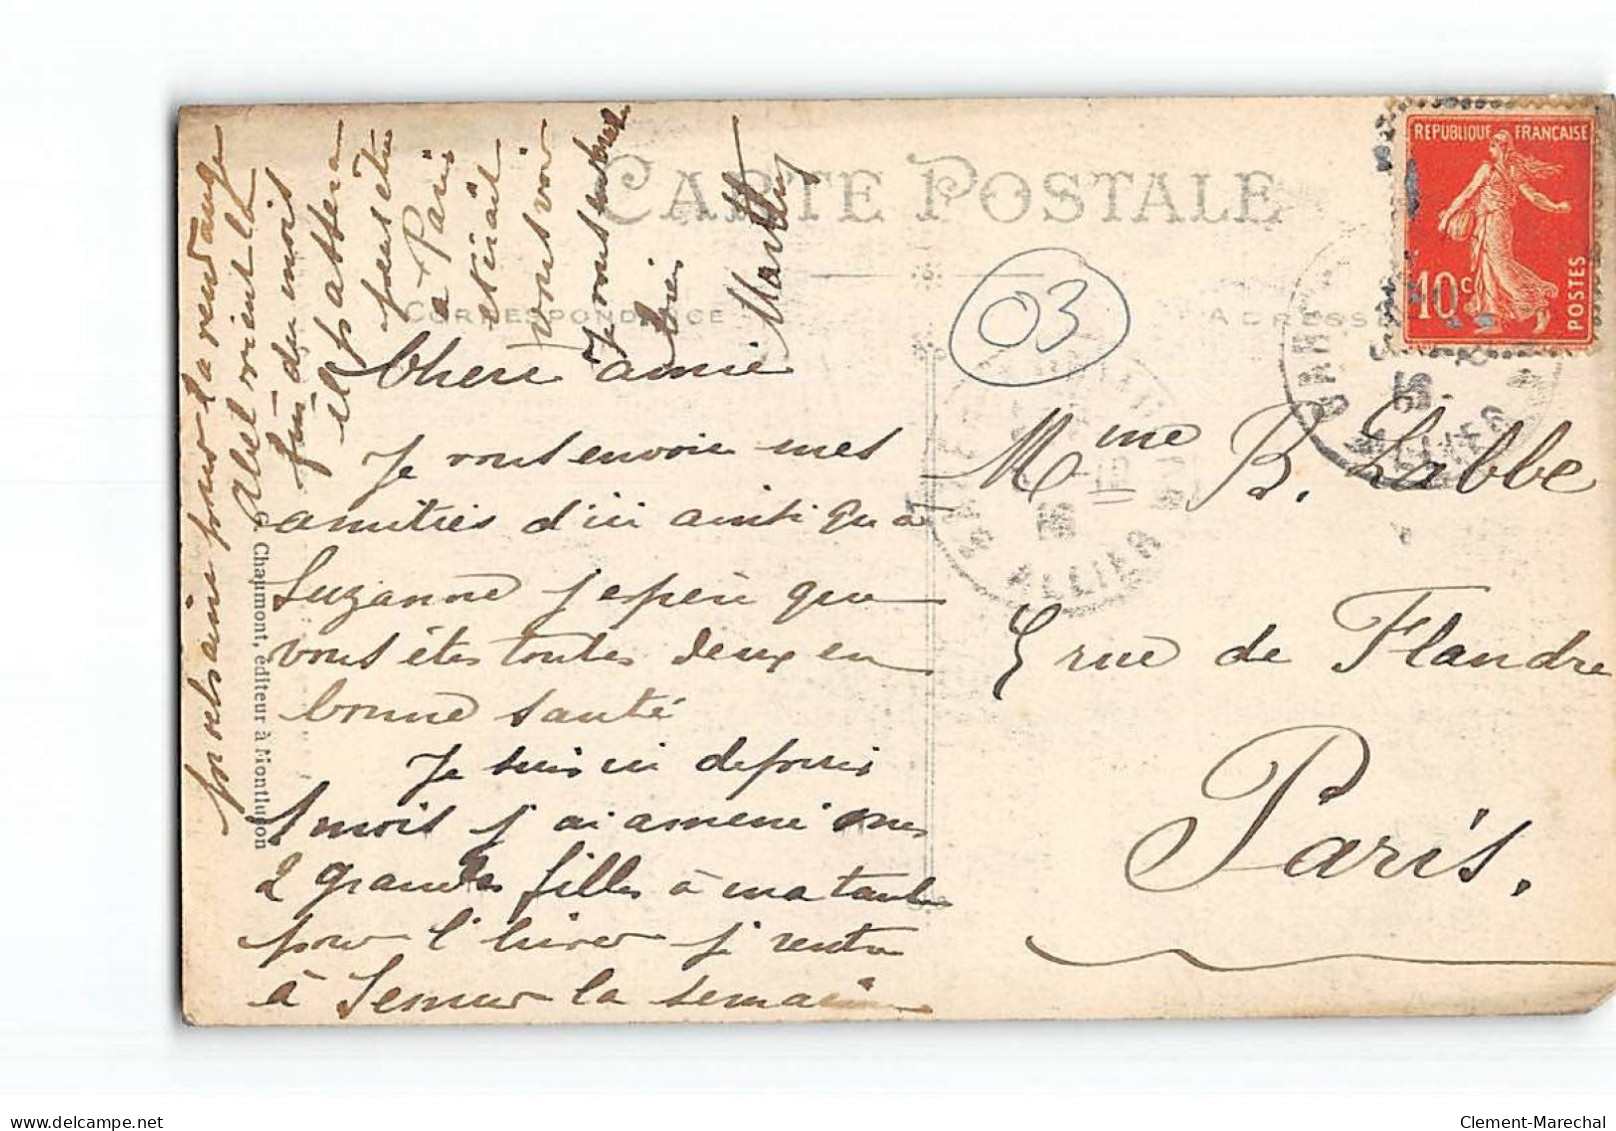 CARTE POSTALE
CORRESPONDANCE
ADRESSE
REPUBLIQUE FRANÇAISE
10c
POSTES
03
ALLIER
Chere amie
Je vous envoie mes
amitiés d'ici ainsi qu'a
Suzanne j'espère que
vous êtes toutes deux en
bonne santé
Je suis ici depuis
1 mois j'ai amené mes
2 grandes filles à ma tante
pour l'hiver je rentre
à Semur la semaine
prochaine pour la vendange
Abel vient la
fin du mois
il
peut être
a Paris
et irait
vous voir
Je vous embrasse
bien
Marthe
Mme B. Labbe
5 rue de Flandre
Paris.
Chaumont, éditeur à Montluçon
delcampe.net
Clement-Marechal